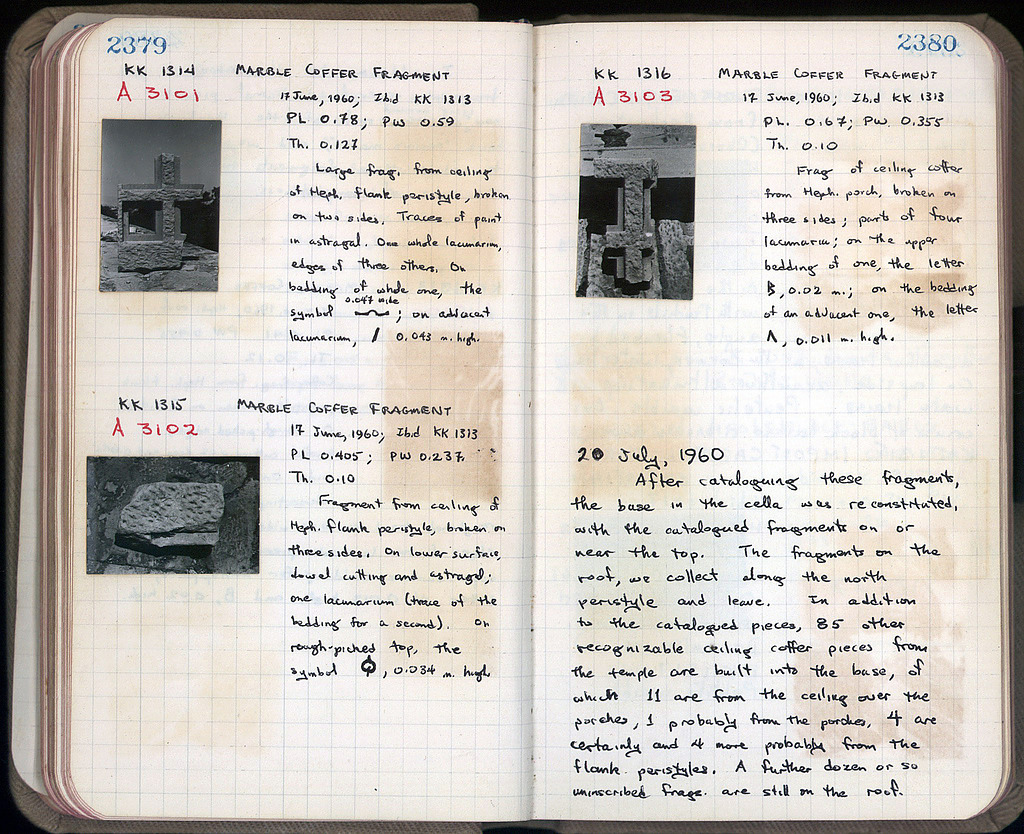 2379
KK 1314 MARBLE COFFER FRAGMENT
A 3101 17 June, 1960; Ibid KK 1313
PL 0.78; PW 0.59
Th. 0.127
Large frag. from ceiling
of Heph. flank peristyle, broken
on two sides. Traces of paint
in astragal. One whole lacunarium,
edges of three others. On
bedding of whole one, the
0.047 wide
symbol ; on adjacent
lacunarium, / 0.043 m. high.
KK 1315 MARBLE COFFER FRAGMENT
A 3102 17 June, 1960; Ibid KK 1313
PL 0.405; PW 0.237
Th. 0.10
Fragment from ceiling of
Heph. flank peristyle, broken on
three sides. On lower surface,
dowel cutting and astragal;
one lacunarium (trace of the
bedding for a second). On
rough-picked top, the
symbol , 0.034 m. high.
2380
KK 1316 MARBLE COFFER FRAGMENT
A 3103 17 June, 1960; Ibid KK 1313
PL. 0.67; PW. 0.355
Th. 0.10
Frag of ceiling coffer
from Heph. porch, broken on
three sides; parts of four
lacunaria; on the upper
bedding of one, the letter
B, 0.02 m.; on the bedding
of an adjacent one, the letter
Λ, 0.011 m. high.
20 July, 1960
After cataloguing these fragments,
the base in the cella was reconstituted,
with the catalogued fragments on or
near the top. The fragments on the
roof, we collect along the north
peristyle and leave. In addition
to the catalogued pieces, 85 other
recognizable ceiling coffer pieces from
the temple are built into the base, of
which 11 are from the ceiling over the
porches, 1 probably from the porches, 4 are
certainly and 4 more probably from the
flank peristyles. A further dozen or so
uninscribed frags. are still on the roof.